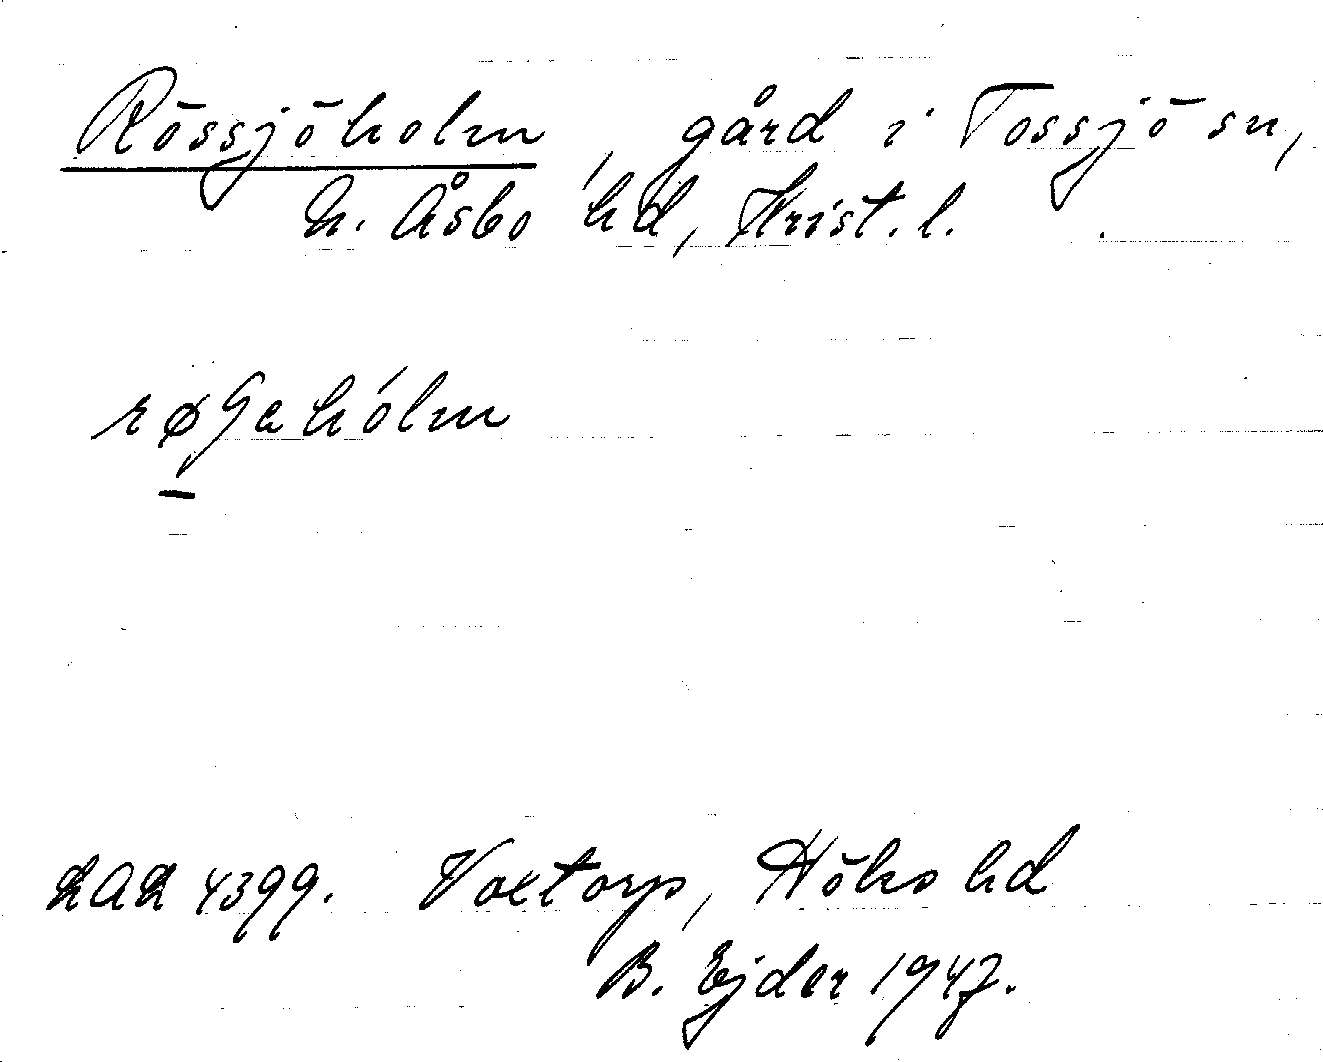 Rössjöholm, gård i Tossjö sn,
N. Åsbo hd, Krist. l.
røʃahólm
LAL 4399. Voxtorp, Höks hd
B. Ejder 1947.